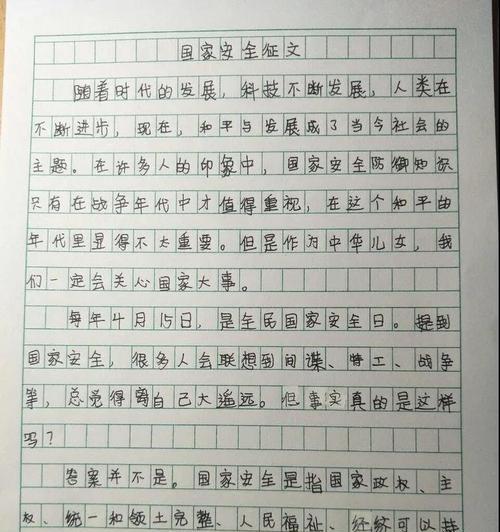 国家安全征文
随着时代的发展，科技不断发展，人类在
不断进步，现在，和平与发展成了当今社会的
主题。在许多人的印象中，国家安全防御知识
只有在战争年代中才值得重视，在这个和平的
年代里显得不太重要。但是作为中华儿女，我
们一定会关心国家大事。
每年4月15日，是全民国家安全日。提到
国家安全，很多人会联想到间谍、特工、战争
等，总觉得离自己大遥远。但事实真的是这样
吗？
答案并不是。国家安全是指国家政权、主
权、统一和领土完整、人民福祉、经济可以持